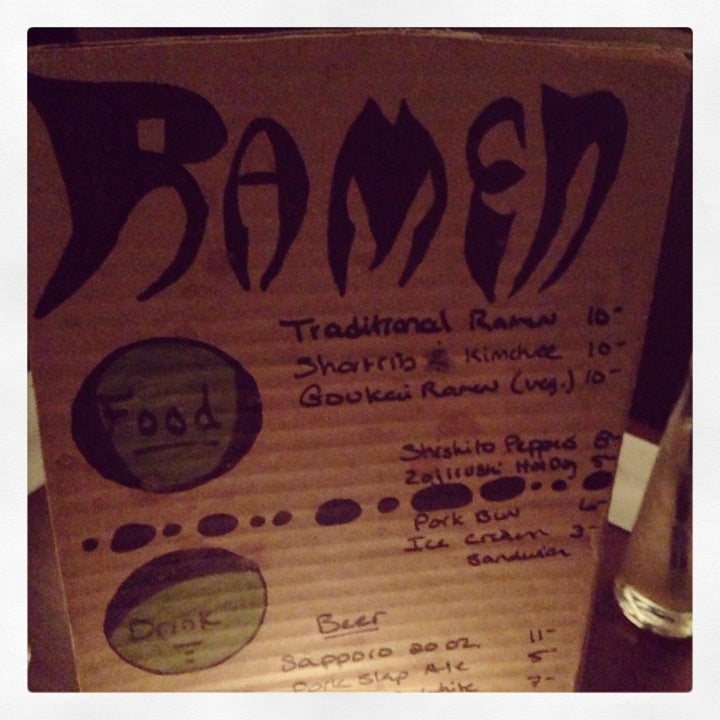 RAMEN
Traditional Ramen 10-
Shortrib & Kimchee 10-
Goukai Ramen (veg.) 10-
Food
Shishito Peppers 8-
Zojirushi Hot Dog 5-
Pork Bun
Ice cream 3-
Sandwich
Drink
Beer
Sapporo 20 oz. 11-
Pork Slap Ale 5-
White 7-